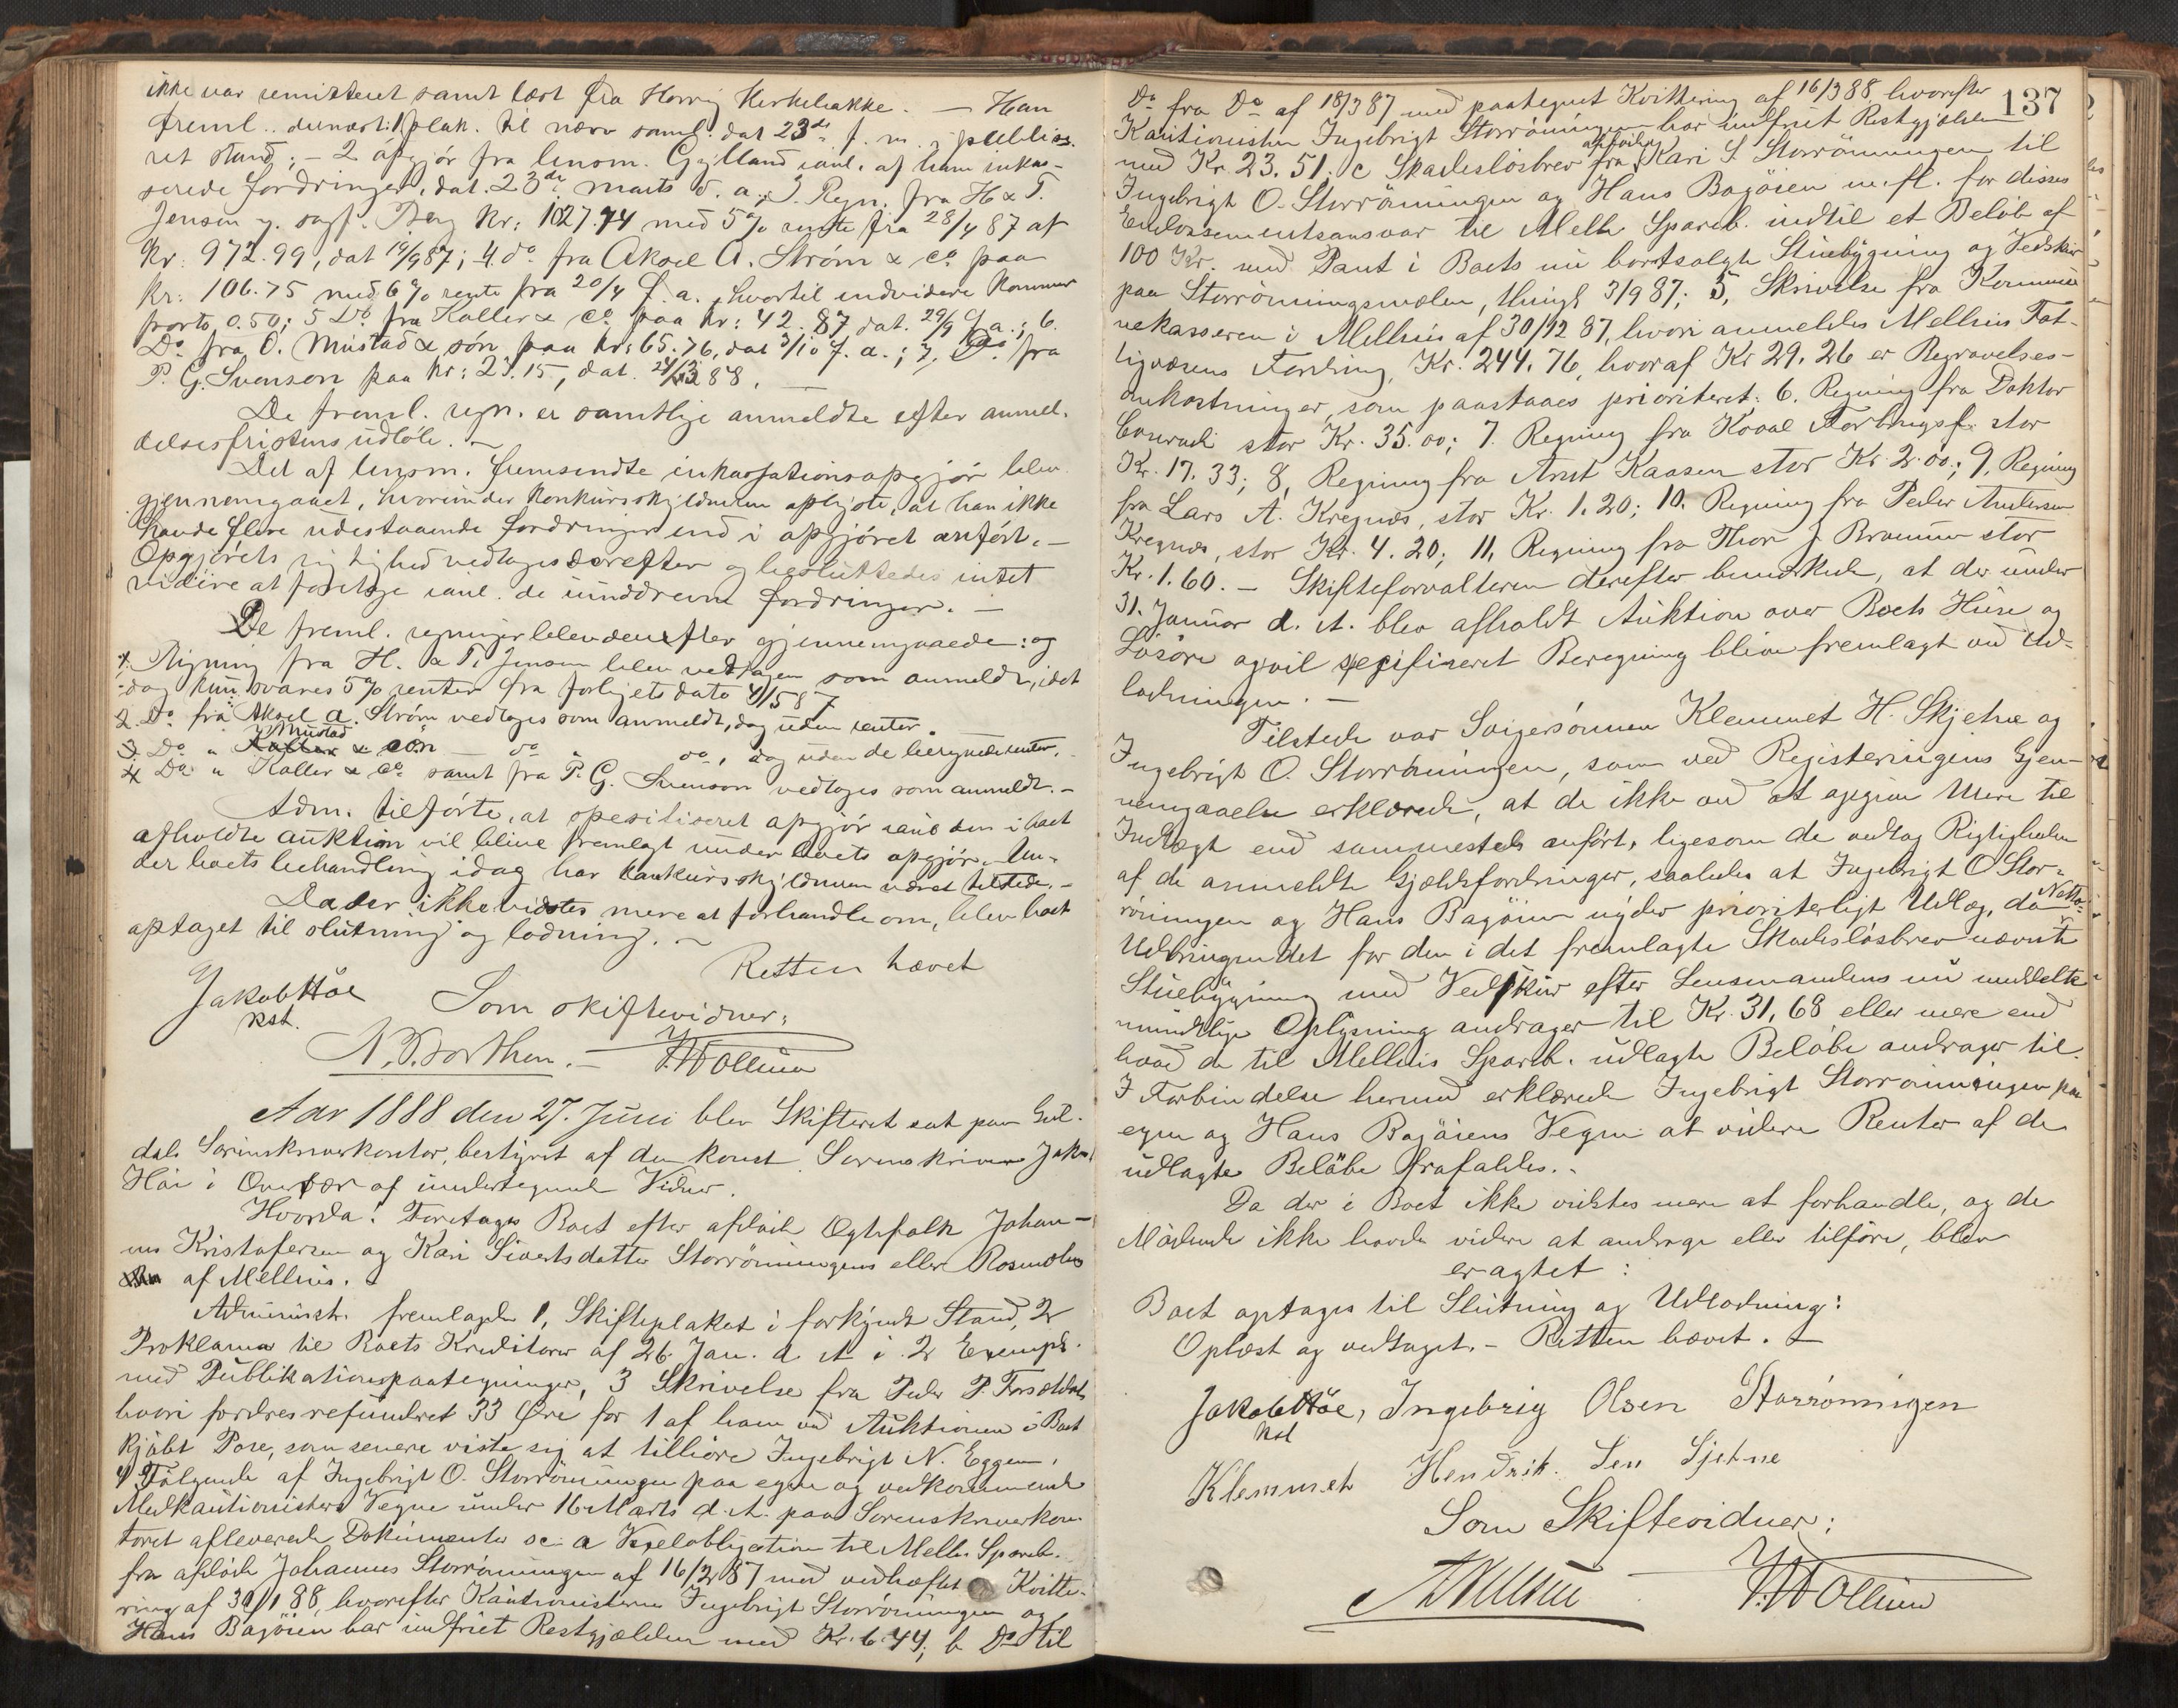 ikke var remitteret samt læst fra Horrig Kirkebakke. — Han
freml. dernæst: 1 plak. til nærv. saml. dat 23de f. m. i publice-
ret stand; - 2 opgjør fra lensm. Gylland ianl. af ham inkas-
serede fordringer, dat. 23de marts d. a.; 3. Regn. fra H & T.
Jensen y. sagf. Berg Kr: 1027.74 med 5% rente fra 28/4 87 af
Kr. 972.99, dat 19/9 87; 4. do fra Aksel A. Strøm & co. paa
Kr: 106.75 med 6% rente fra 20/4 f. a. hvortil endvidere kommer
porto 0.50; 5 Do fra Koller & co. paa kr: 42.87 dat. 29/9 f. a.; 6.
Do. fra O. Mustad & søn paa kr: 65.76, dat 3/10 f. a.; 7, Do. fra
P. G. Svenson paa kr: 27.15, dat. 24/3 88. —
De freml. regn. er samtlige anmeldte efter anmel-
delsesfristens udløb. —
Det af lensm. fremsendte inkassationsopgjør blev
gjennemgaaet, hvorunder konkursskyldneren oplyste, at han ikke
havde flere udestaaende fordringer end i opgjøret anført. —
Opgjørets rigtighed vedtoges derefter og besluttedes intet
videre at foretage ianl. de uinddrevne fordringer. —
De freml. regninger blev derefter gjennemgaaede: og
1. Regning fra H. & T. Jensen blev vedtagen som anmeldt, idet
dog kun svares 5% renter fra forligets dato 4/5 87
2. Do fra Aksel A. Strøm vedtoges som anmeldt, dog uden renter.
3. Do " O Mustad & søn — do — do, dog uden de beregnede renter.
4 Do " Koller & Co. samt fra P. G. Svenson vedtoges som anmeldt. —
Adm. tilførte, at spesifiseret opgjør ianl. den i boet
afholdte auktion vil blive fremlagt under boets opgjør. Un-
der boets behandling idag har konkursskyldneren været tilstede. —
Da der ikke vidstes mere at forhandle om, blev boet
optaget til slutning og lodning. —
Retten hævet
Jakob Høe
kst.
Som skiftevidner:
N. P. Borthen. — J. Wollum
Aar 1888 den 27. Juni blev Skifteret sat paa Gul-
dals Sorenskriverkontor, bestyret af den konst. Sorenskriver Jakob
Höe i Overvær af undertegnede Vidner.
Hvorda: Foretages Boet efter afdøde Ægtefolk Johan-
nes Kristofersen og Kari Sivertsdatter Storrønningens eller Rosmolens
af Melhus.
Administr. fremlagde 1, Skifteplakat i forkyndt Stand, 2
Proklama til Boets Kreditorer af 26 Jan. d. A i 2 Exempl.
med Publikationspaategninger, 3 Skrivelse fra Peder P. Forseldal
hvori fordres refunderet 33 Øre for 1 af ham ved Auktionen i Boet
kjøbt Pose, som senere viste sig at tilhøre Ingebrigt N. Eggen,
4 Følgende af Ingebrigt O. Storrønningen paa egne og vedkommende
Medkautionisters Vegne under 16 Marts d. A. paa Sorenskriverkon-
toret afleverede Dokumenter sc: a Vexelobligation til Melh. Spareb.
fra afdøde Johannes Storrønningen af 16/2 87 med vedhæftet Kvitte-
ring af 30/1 88, hvorefter Kautionisterne Ingebrigt Storrønningen og
Hans Bagøien har indfriet Restgjælden med Kr. 6.44; b Do til
137
Do fra Do af 18/3 87 med paategnet Kvittering af 16/3 88 hvorefter
Kautionisten Ingebrigt Storrønningen har indfriet Restgjælden
med Kr. 23.51; c Skadesløsbrev fra afdøde Kari S. Storrønningen til
Ingebrigt O. Storrønningen og Hans Bagøien m. fl. for disses
Endossementsansvar til Melh. Spareb. indtil et Beløb af
100 Kr. med Pant i Boets nu bortsolgte Stuebygning og Vedskur
paa Storrønningsmolen, thingl. 3/9 87; 5, Skrivelse fra Kommu-
nekasseren i Melhus af 30/12 87, hvori anmeldes Melhus Fat-
tigvæsens Fordring, Kr. 244.76, hvoraf Kr 29.26 er Begravelses-
omkostninger, som paastaaes prioriteret; 6. Regning fra Doktor
Conradi stor Kr. 35.00; 7. Regning fra Hoval Forbrugsf. stor
Kr. 17.33; 8, Regning fra Arnt Kaasen stor Kr. 2.00; 9, Regning
fra Lars A. Kregnæs, stor Kr. 1.20; 10. Regning fra Peder Andersen
Kregnæs, stor Kr. 4.20; 11, Regning fra Thore J. Braamr stor
Kr. 1.60. — Skifteforvalteren derefter bemærkede, at der under
31. Januar d. A. blev afholdt Auktion over Boets Huse og
Løsøre og vil specifiseret Beregning blive fremlagt ved Ud-
lodningen. —
Tilstede var Svigersønnen Klemmet H. Skjetne og
Ingebrigt O. Storrønningen, som ved Registeringens Gjen-
nemgaaelse erklærede, at de ikke ved at opgive Mere til
Indtægt end sammesteds anført, ligesom de vedtog Rigtigheden
af de anmeldte Gjældsfordringer, saaledes at Ingebrigt O Stor-
rønningen og Hans Bagøien nyder prioriterligt Udlæg, da Netto-
Udbringendet for den i det fremlagte Skadesløsbrev nævnte
Stuebygning med Vedskur efter Lensmandens nu meddelte
mundtlige Oplysning andrager til Kr. 31,68 eller mere end
hvad de til Melhus Spareb. udlagte Beløbe andrager til.
I Forbindelse hermed erklærede Ingebrigt Storrønningen paa
egne og Hans Bagøiens Vegne at videre Renter af de
udlagte Beløbe frafaldes.
Da der i Boet ikke vidstes mere at forhandle, og de
Mødende ikke havde videre at andrage eller tilføre, blev
eragtet:
Boet optages til Slutning og Udlodning:
Oplæst og vedtaget. — Retten hævet. —
Jakob Høe, Ingebrig Olsen Storrønnigen
kst
Klemmet Hendrik. Sen Sjetne
Som Skiftevidner:
J. Wollum